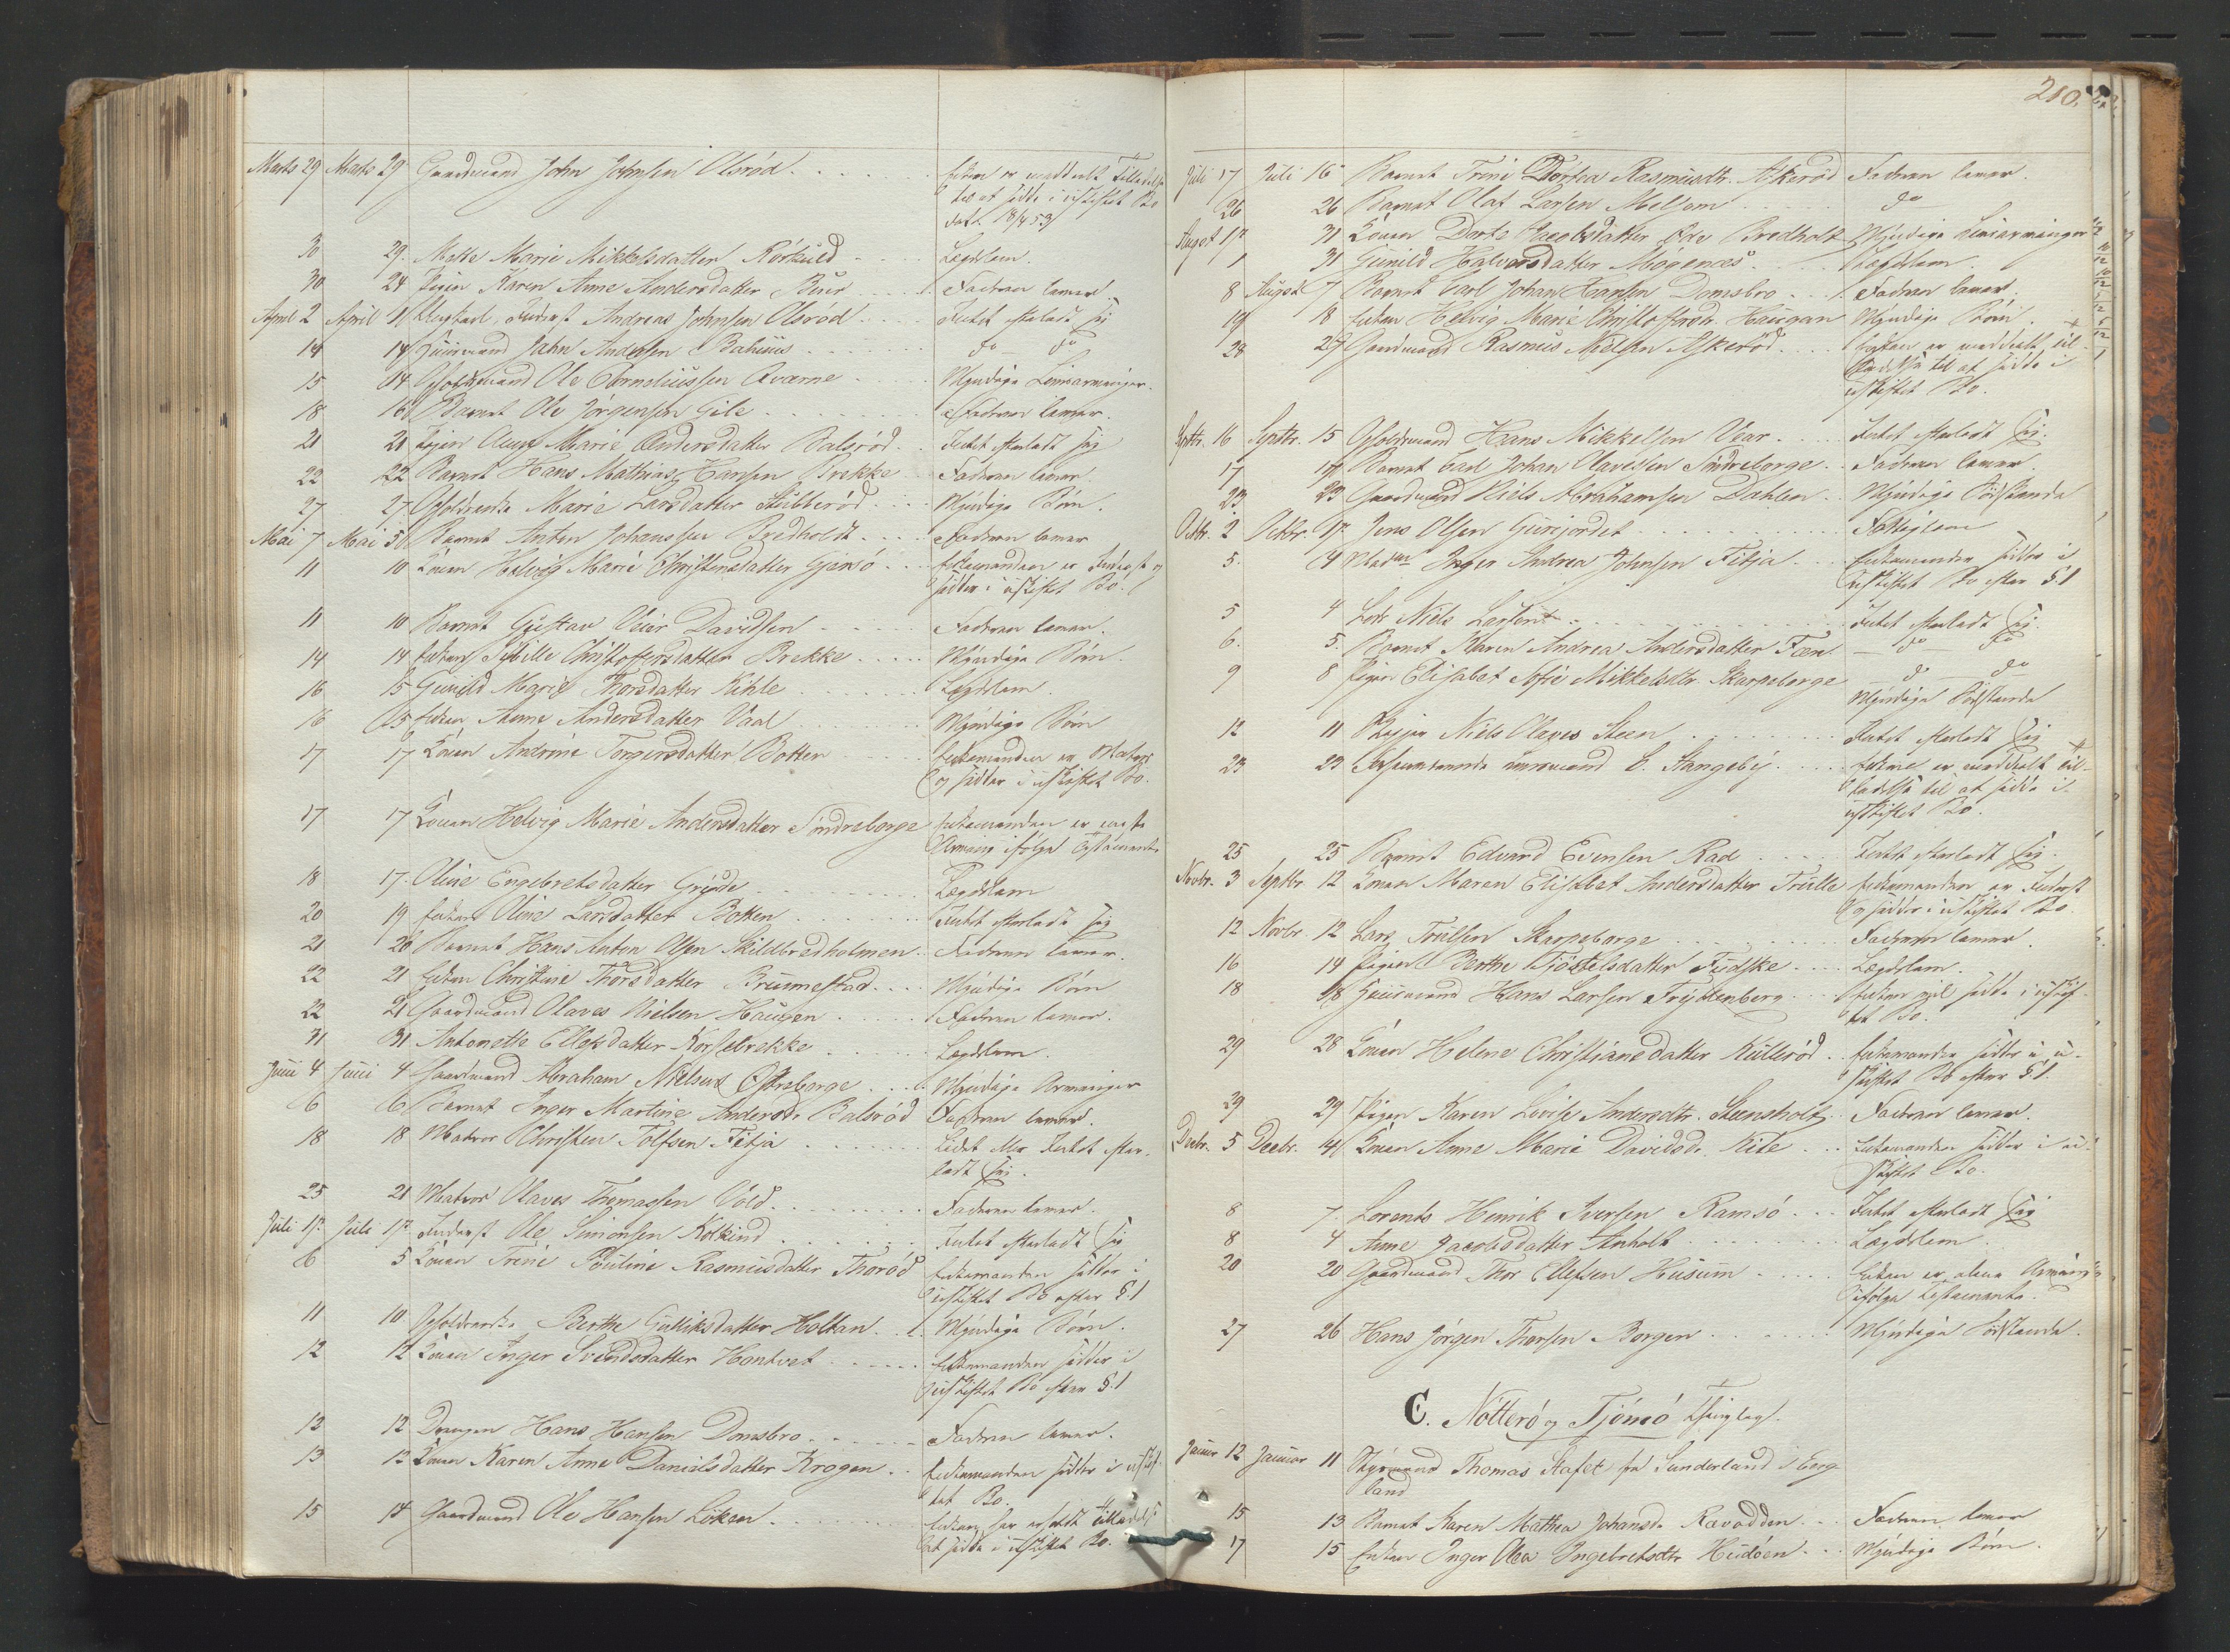 Marts 29 Marts 29 Gaardmand John Johnsen Olsrød. Enken er meddeelt Tilladelse
til at sidde i uskiftet Bo
dat. 18/4 53
30 29. Mette Marie Mikkelsdatter Lægdslem.
30 24 Pigen Karen Anne Andersdatter Faderen lever.
April 2 April 1 Inderst Andreas Johnsen Olsrød Intet efterladt sig
14 14 Huusmand Jahn Andersen Bahuus do do
15 14 Ole Corneliussen Myndige Livsarvinger.
18 16 Barnet Ole Jørgensen Gile Faderen lever.
21 21 Pigen Marie Andersdatter Balsrød Intet efterladt sig
22 22 Barnet Hans Mathias Hansen Brekke Faderen lever.
27 27 Marie Larsdatter Stubberød Myndige Børn.
Mai 7 Mai 5 Barnet Anton Johanssen Bredholdt Faderen lever
11 10 Konen Helvig Marie Christensdatter Enkemanden er Inderst og
sidder i uskiftet Bo.
11 10 Barnet Gustav Davidsen Faderen lever.
14 14 Enken Sybille Christoffersdatter Brekke Myndige Børn.
16 15 Gunild Marie Thorsdatter Kihle Lægdslem.
16 15 Enken Anne Andersdatter Vaal Myndige Børn
17 17 Konen Andrine Torgersdatter Botten Enkemanden er Matros
og sidder i uskiftet Bo.
17 17 Konen Helvig Marie Andersdatter Søndreborge Enkemanden er eneste
Arving ifølge Testamente
18 17. Oline Engebretsdatter Grýde Lægdslem
20 19 Enken Oline Larsdatter Botten Intet efterladt sig
21 20 Barnet Hans Anton Olsen Skildbredholmen Faderen lever.
22 21 Enken Christine Thorsdatter Brunnestad Myndige Børn
22 21 Gaardmand Olaves Nielsen Haugen Faderen lever.
31 31 Antonette Ellefsdatter Korsebrekke Lægdslem.
Juni 4 Juni 4 Gaardmand Abraham Nielsen Østreborge Myndige Arvinger
6 6 Barnet Inger Martine Andersdr. Balsrød Faderen lever.
18 18 Matros Christen Tolfsen Fitja Lidet eller Intet efter-
ladt sig.
25 21 Matros Olaves Thomassen Vold Faderen lever.
Juli 1ste Juli 1ste Inderst Ole Simonsen Kolkind Intet efterladt sig
6 5 Konen Trine Pouline Rasmusdatter Thorød Enkemanden sidder i
uskiftet Bo efter § 1
11 10 Berthe Gulliksdatter Holtan Myndige Børn.
12 12 Konen Inger Svendsdatter Hontvet Enkemanden sidder i
uskiftet Bo efter § 1
12 12 Drengen Hans Hansen Domsbro Faderen lever.
13 12 Konen Karen Anne Danielsdatter Krogen Enkemanden sidder i uskif-
tet Bo.
15 14 Gaardmand Ole Hansen Løken Enken har erholdt Tilladelse
at sidde i uskiftet Bo.
210.
Juli 17 Juli 16 Barnet Trine Dortea Rasmusdtr. Askerød Faderen lever.
26 26 Barnet Olaf Larsen Melsom do
August 1ste 31 Konen Dorte Jacobsdatter Bredholt Myndige Livsarvinger
1 31 Gunild Halvorsdatter Mogenæs Lægdslem.
8 August 7 Barnet Carl Johan Hansen Domsbro Faderen lever.
19 18 Enken Helvig Marie Christoffersdtr. Haugan Myndige Børn.
28 27 Gaardmand Rasmus Nielsen Askerød Enken er meddeelt Til-
ladelse til at sidde i
uskiftet Bo.
Septbr. 16 Septbr. 15 Hans Mikkelsen Vear Intet efterladt sig.
17 17 Barnet Carl Johan Olavessen Søndreborge Faderen lever.
23 23 Gaardmand Niels Abrahamsen Dahlen Myndige Sødskende
Octbr. 2 Octbr. 1ste Jens Olsen Gurejordet Fattiglem
5. 4 Madm Inger Andrea Johnsen Fitja Enkemanden sidder i
uskiftet Bo efter § 1
5 4 Lods Niels Larsen Intet efterladt sig.
6. 5. Barnet Karen Andrea Andersdatter Fæn do do
9 8 Pigen Elisabet Sofie Mikkelsdtr. Skarpeborge do do
Myndige Sødskende
12 11 Niels Olaves Steen Intet efterladt sig
23 23 C. Stangeby Enken er meddeelt Til-
ladelse til at sidde i
uskiftet Bo.
25 25 Barnet Edvard Evensen Rad Intet efterladt sig.
Novbr. 3 Septbr. 12 Konen Maren Elisabet Andersdatter Trulle Enkemanden er Inderst
og sidder i uskiftet Bo.
12 Novbr. 12 Lars Trulsen Skarpeborge Faderen lever.
16 14 Pigen Berthe Kjøstelsdatter Fudske Lægdslem.
18 18 Huusmand Hans Larsen Trýttenberg Enken vil sidde i uskif-
tet Bo.
29 28 Konen Helene Christiansdatter Kullerød Enkemanden sidder i u-
skiftet Bo efter § 1.
29 29 Pigen Karen Lovise Andersdtr. Steensholt Faderen lever.
Decbr. 5 Decbr. 4 Konen Anne Marie Davidsdr. Kile Enkemanden sidder i u-
skiftet Bo.
8 7. Lorents Henrik Iversen Ramsø Intet efterladt sig
8 4 Anne Jacobsdatter Anholt Lægdslem
20 20 Gaardmand Thor Ellefsen Husum Enken er alene Arving
ifølge Testamente.
27 26 Hans Jørgen Thorsen Borgen Myndige Sødskende.
C. Nøtterø og Tjømø Thinglag.
Januar 12 Januar 11 Styrmand Thomas Stafet fra Sunderland i Eng-
land
15 13 Barnet Karen Mathea Johansdr. Ravodden Faderen lever
17 15 Enken Inger Olea Ingebretsdtr Hudøen Myndige Børn.